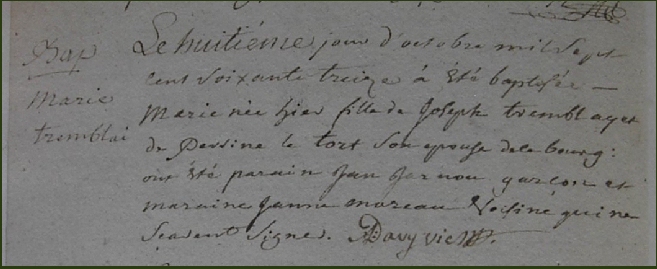 Bap
Marie
tremblai
Le huitiéme jour d'octobre mil sept
cent soixante treize a été baptisée —
Marie née hier fille de Joseph tremblay et
de Perrine le tort son epouse de le bourg:
ont été parain Jan garçon et
maraine Janne moreau Voisine qui ne
scavent signer. Davy vic